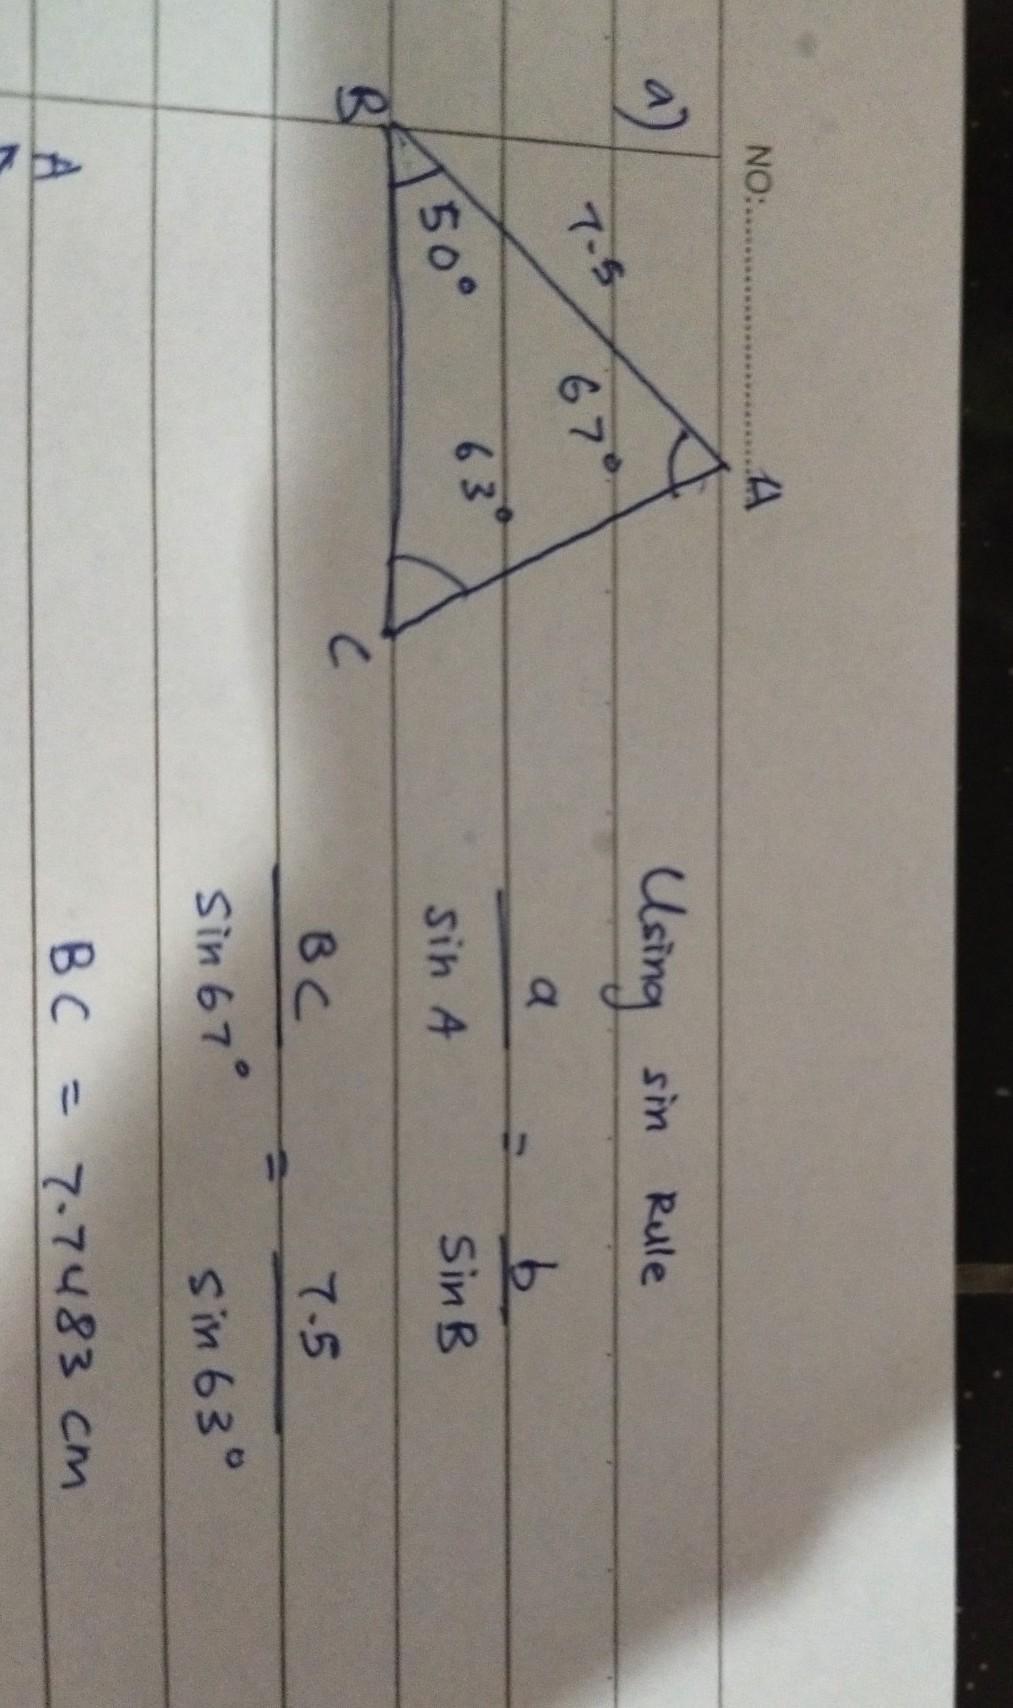 NO:
A
a)
7.5
67°
50°
63°
B
C
Using sin Rule
a = b
sin A Sin B
BC = 7.5
Sin 67° Sin 63°
BC = 7.7483 cm
A